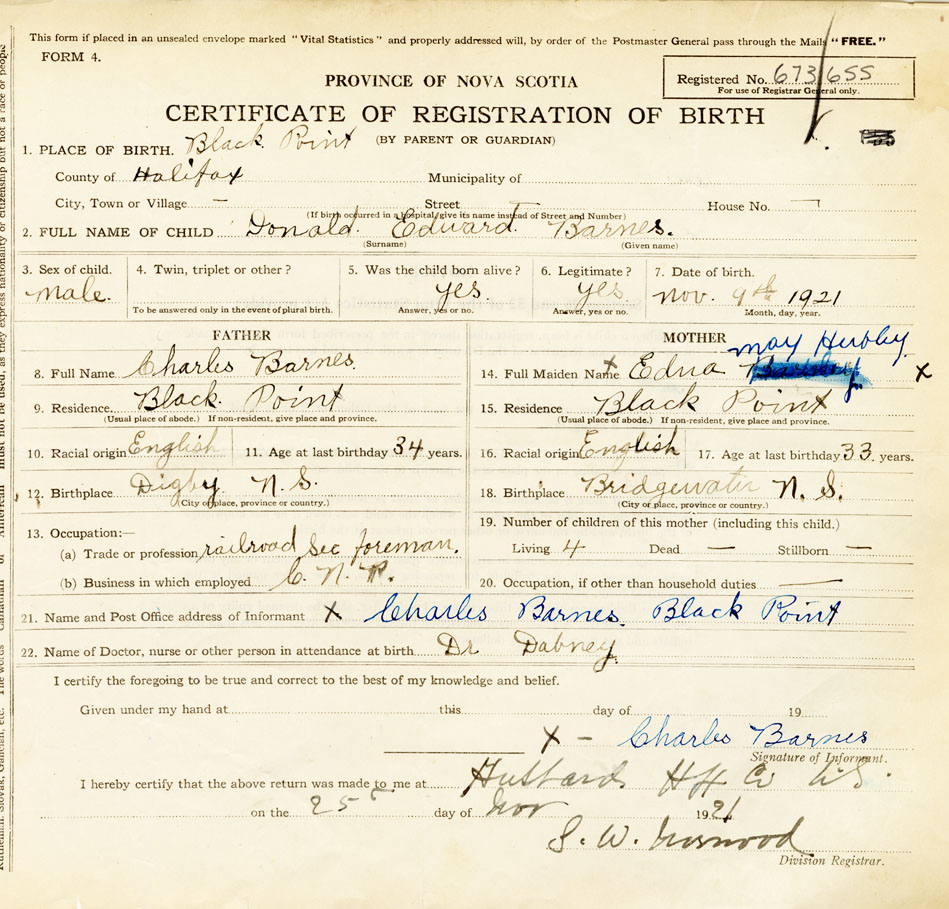 This form if placed in an unsealed envelope marked "Vital Statistics" and properly addressed will, by order of the Postmaster General pass through the Mails "FREE."
FORM 4.
PROVINCE OF NOVA SCOTIA
Registered No. 673655
For use of Registrar General only.
CERTIFICATE OF REGISTRATION OF BIRTH
(BY PARENT OR GUARDIAN)
1. PLACE OF BIRTH. Black Point
County of Halifax Municipality of
City, Town or Village — Street House No. —
(If birth occurred in a hospital give its name instead of Street and Number)
2. FULL NAME OF CHILD Donald Edward Barnes.
(Surname) (Given name)
3. Sex of child. 4. Twin, triplet or other? 5. Was the child born alive? 6. Legitimate? 7. Date of birth.
male. yes. yes nov. 9th 1921
To be answered only in the event of plural birth. Answer, yes or no. Answer, yes or no. Month, day, year.
FATHER
8. Full Name Charles Barnes.
9. Residence. Black Point
(Usual place of abode.) If non-resident, give place and province.
10. Racial origin English 11. Age at last birthday 34 years.
12. Birthplace Digby N.S.
(City or place, province or country.)
13. Occupation:—
(a) Trade or profession railroad sec foreman.
(b) Business in which employed C.N.R.
MOTHER
14. Full Maiden Name x Edna may x
15. Residence Black Point
(Usual place of abode.) If non-resident, give place and province.
16. Racial origin English 17. Age at last birthday 33. years.
18. Birthplace Bridgewater N.S.
(City or place, province or country.)
19. Number of children of this mother (including this child.)
Living 4 Dead — Stillborn —
20. Occupation, if other than household duties —
21. Name and Post Office address of Informant x Charles Barnes. Black Point
22. Name of Doctor, nurse or other person in attendance at birth Dr Dabney.
I certify the foregoing to be true and correct to the best of my knowledge and belief.
Given under my hand at this day of 19
x – Charles Barnes
Signature of Informant.
I hereby certify that the above return was made to me at Hubbard Hfx Co N.S.
on the 25 day of Nov 1921
S. W.
Division Registrar.